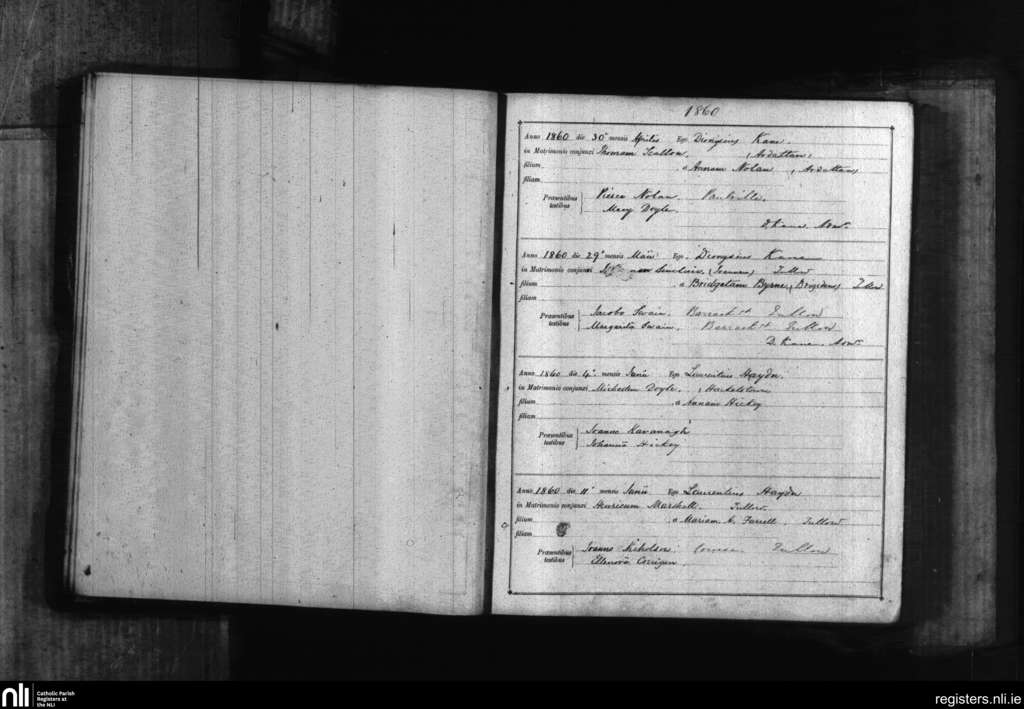 1860
Anno 1860 die 30° mensis Aprilis Ego Dionysius Kane
in Matrimonio conjunxi Thomam (Ardattan)
filium a Annam Nolan, (Ardattan)
filiam
Præsentibus testibus Pierce Nolan
Mary Doyle
D. Kane Admr.
Anno 1860 die 29° mensis Maii Ego Dionysius Kane
in Matrimonio conjunxi (Joannem) Tullow
filium a Bridgetam Byrne, Tullow
filiam
Præsentibus testibus Jacobo Swain, Barrack St Tullow
Margarita Swain, Barrack St Tullow
D. Kane Admr.
Anno 1860 die 4° mensis Junii Ego Laurentius Haydn
in Matrimonio conjunxi Michaelem Doyle,
filium a Annam Hickey
filiam
Præsentibus testibus Joanne Kavanagh
Johanna Hickey
Anno 1860 die 11° mensis Junii Ego Laurentius Haydn
in Matrimonio conjunxi Henricum Marshall. Tullow
filium a Mariam A. Farrell, Tullow
filiam
Præsentibus testibus Joanne Nicholson. Tullow
Ellenora Corrigan
nli Catholic Parish
Registers at
the NLI
registers.nli.ie